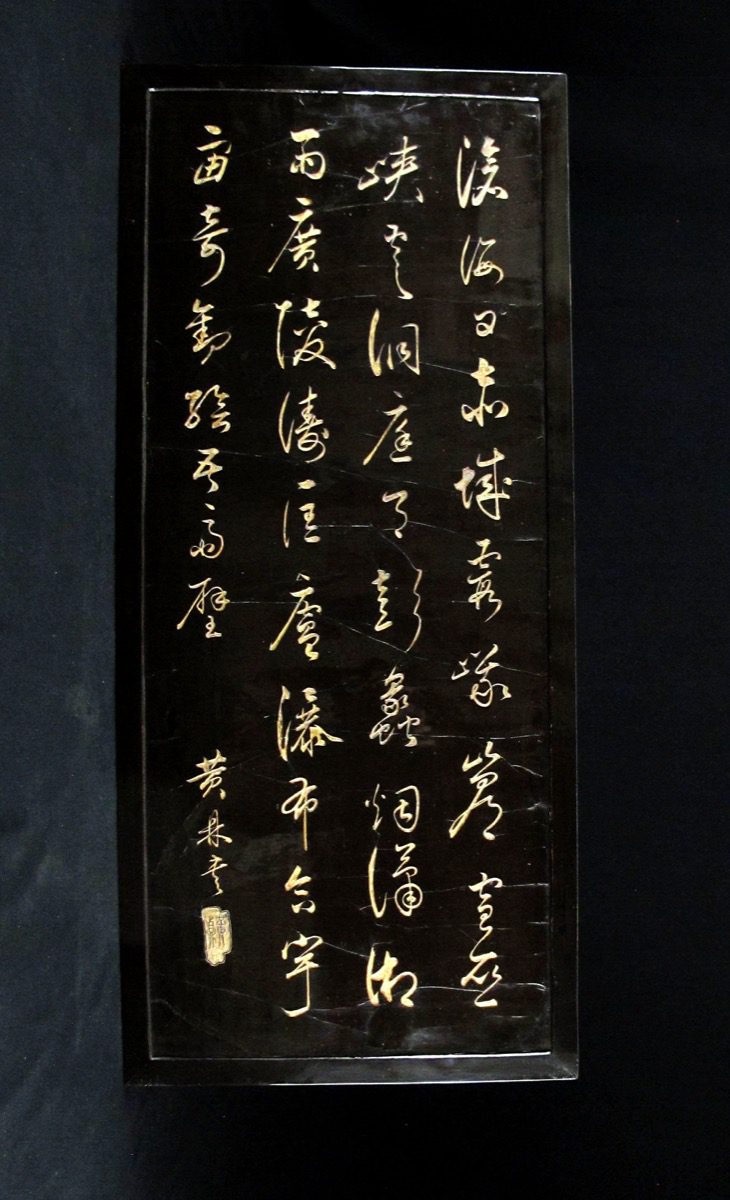 滄海日赤城霞峨嵋雪巫
峽雲洞庭月彭蠡烟瀟湘
雨廣陵濤匡廬瀑布合宇
宙奇觀繪吾齋壁
黄林書